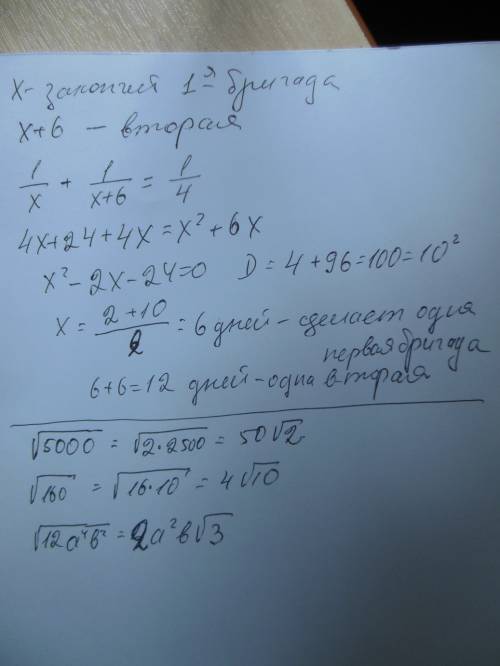 x - закончит 1-я бригада
x+6 - вторая
1/x + 1/(x+6) = 1/4
4x+24+4x=x²+6x
x²-2x-24=0 D=4+96=100=10²
x = (2+10)/2 = 6 дней - сделает одна первая бригада
6+6=12 дней - одна вторая
√5000 = √2·2500 = 50√2
√160 = √16·10 = 4√10
√12a⁴b² = 2a²b√3